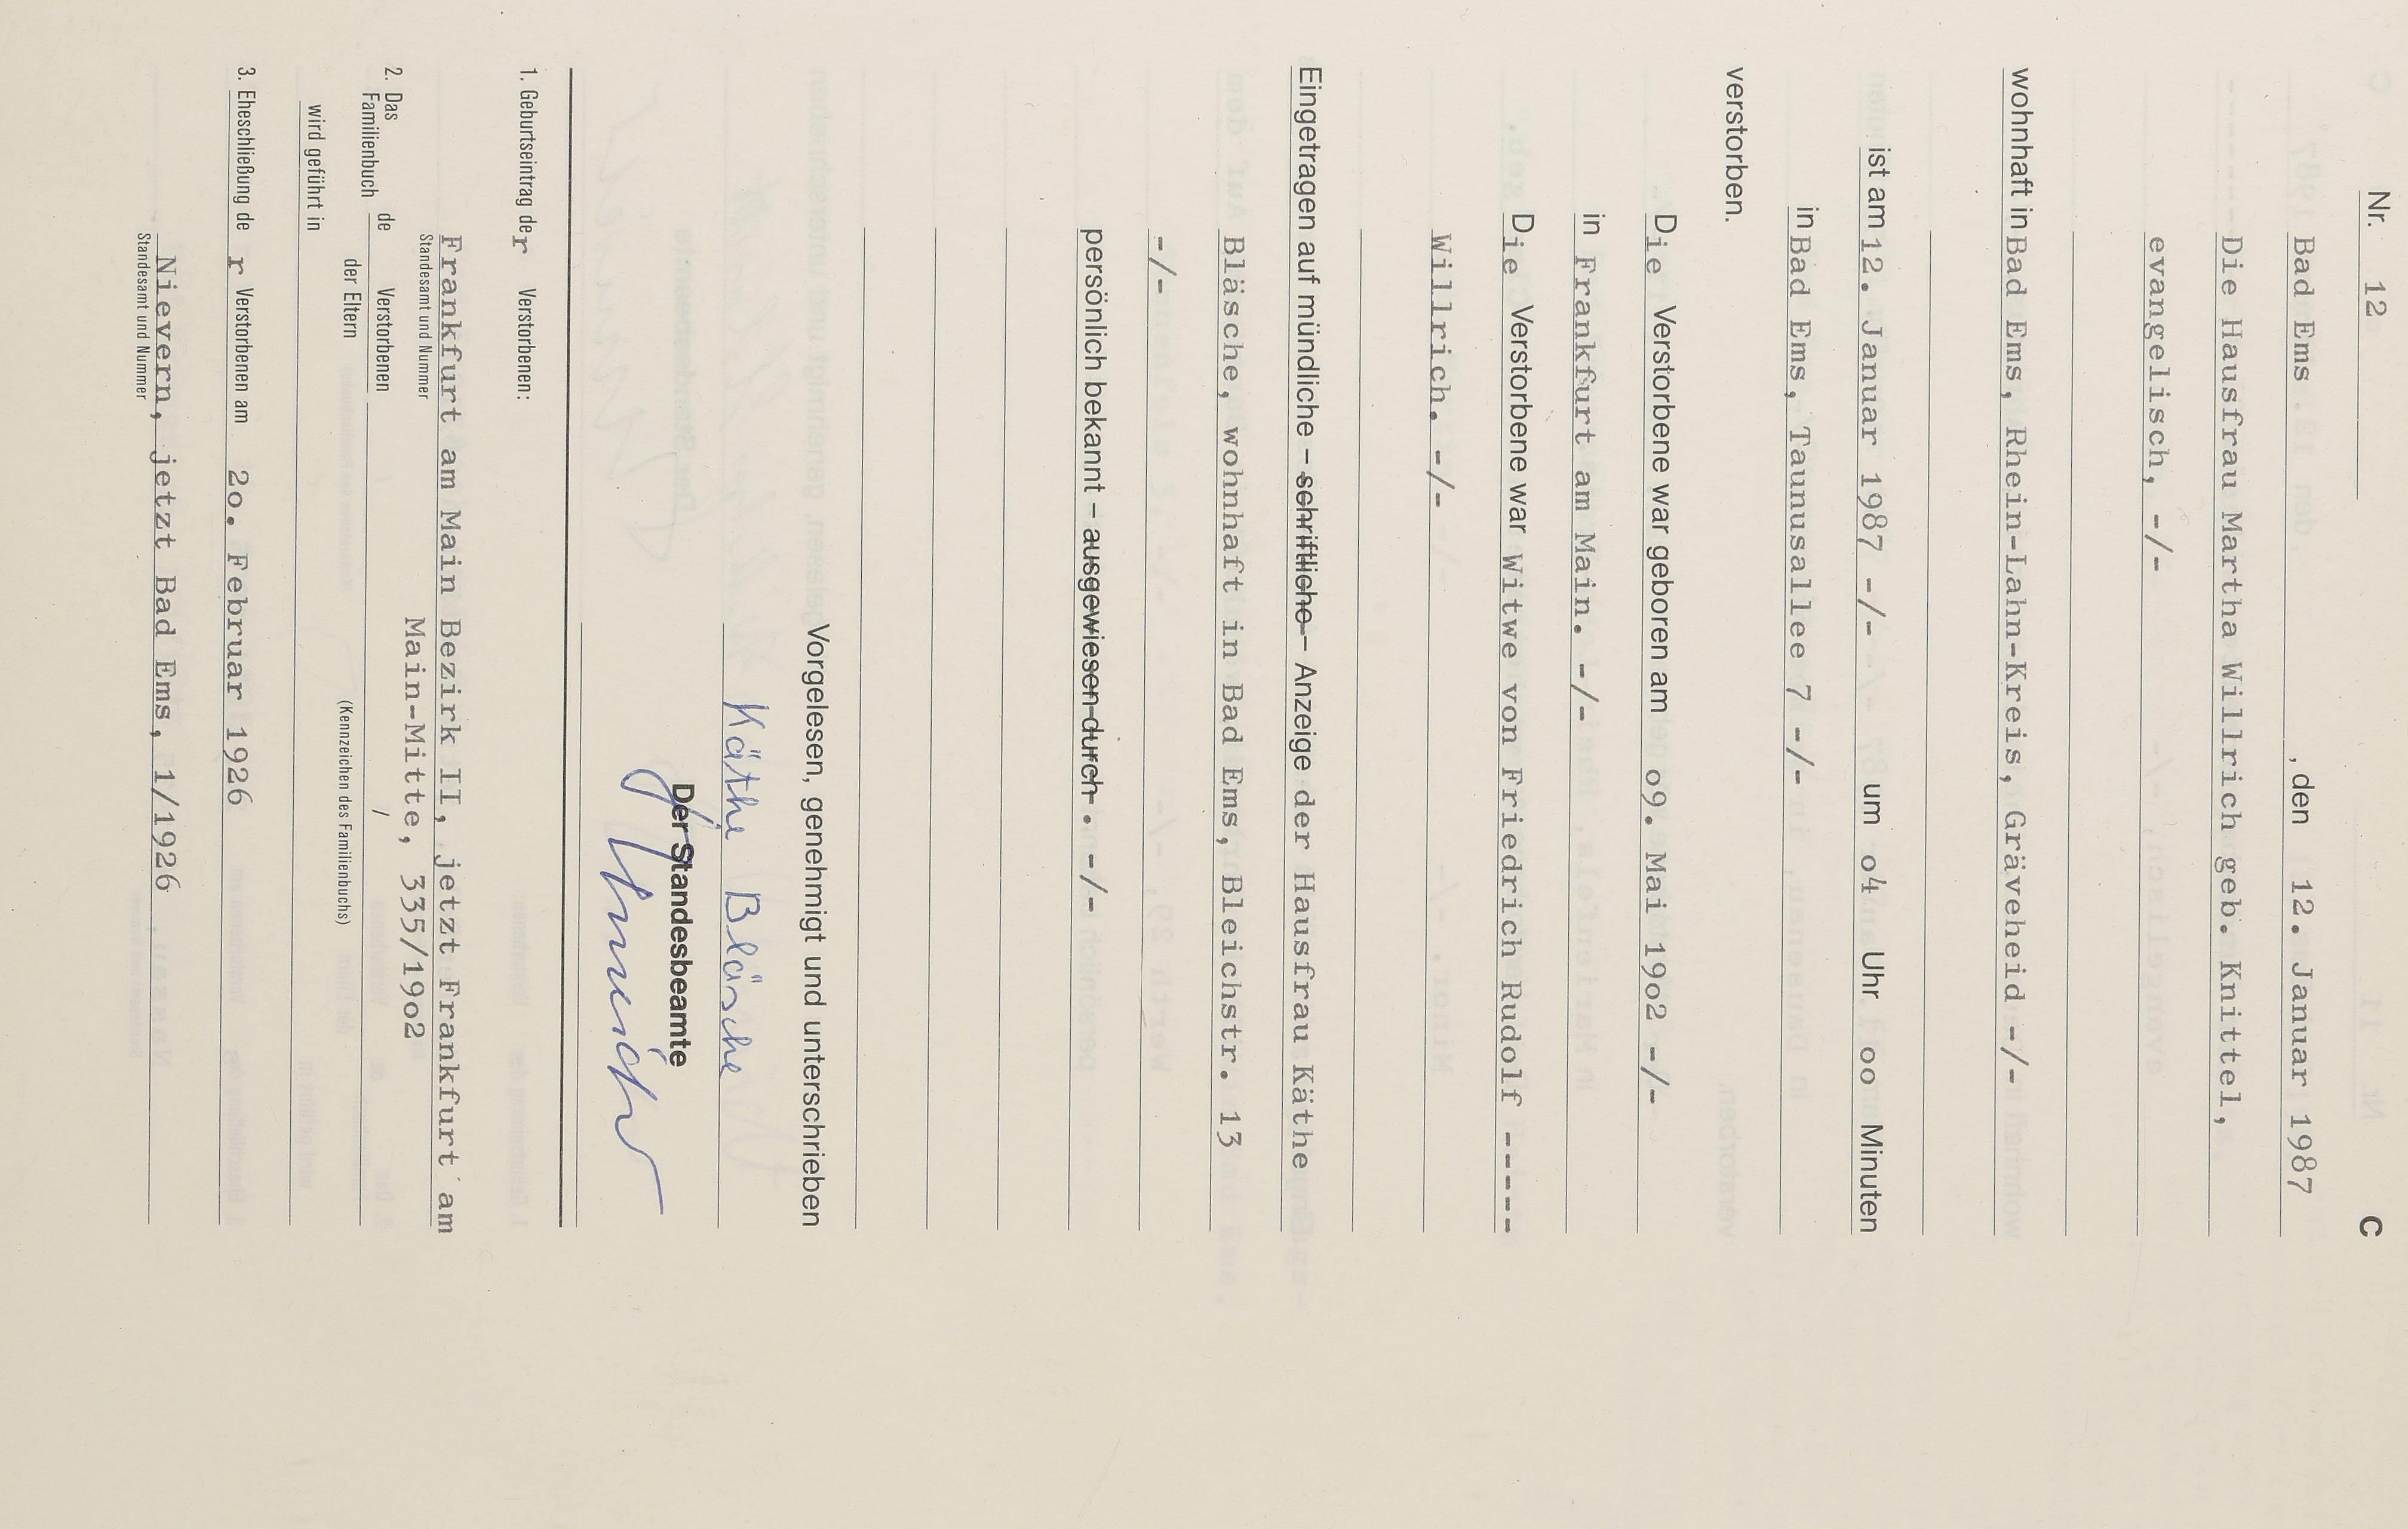 Nr. 12 C
Bad Ems , den 12. Januar 1987
Die Hausfrau Martha Willrich geb. Knittel,
evangelisch, -/-
wohnhaft in Bad Ems, Rhein-Lahn-Kreis, Gräveheid -/-
ist am 12. Januar 1987 -/- um o4 Uhr oo Minuten
in Bad Ems, Taunusallee 7 -/-
verstorben.
Die Verstorbene war geboren am o9. Mai 19o2 -/-
in Frankfurt am Main. -/-
Die Verstorbene war Witwe von Friedrich Rudolf -----
Willrich. -/-
Eingetragen auf mündliche – schriftliche – Anzeige der Hausfrau Käthe
Bläsche, wohnhaft in Bad Ems, Bleichstr. 13
-/-
persönlich bekannt – ausgewiesen durch . -/-
Vorgelesen, genehmigt und unterschrieben
Käthe Bläsche
Der Standesbeamte
1. Geburtseintrag der Verstorbenen:
Frankfurt am Main Bezirk II, jetzt Frankfurt am
Standesamt und Nummer
Main-Mitte, 335/19o2
2. Das Familienbuch de Verstorbenen /
der Eltern
(Kennzeichen des Familienbuchs)
wird geführt in
3. Eheschließung de r Verstorbenen am 2o. Februar 1926
Nievern, jetzt Bad Ems, 1/1926
Standesamt und Nummer